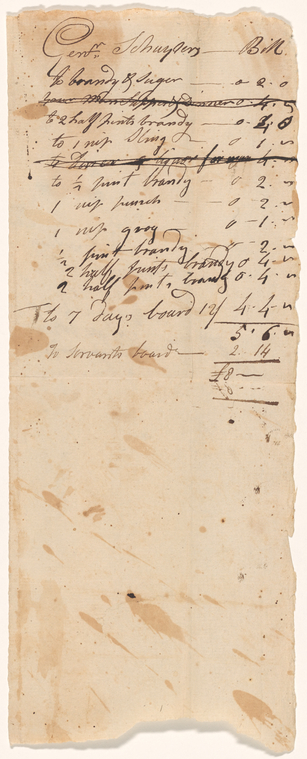 Genrl. Schuylers — Bill
to brandy & Suger — 0 . 2 . 0
0 . 4
to 2 half pints brandy — 0 . 2 . 0
to 1 nip Sling — 0 . 1 .
to Diner & liquor for
to ½ pint brandy — 0 . 2 .
1 nip punch — 0 . 2 .
1 nip grog — 0 . 1 .
½ pint brandy — 2 .
2 half pints brandy 0 . 4 .
2 half pints brandy 0 . 4 .
To 7 days board 12/ 4 . 4 .
5 . 6 .
To Servants board — 2 . 14
£8 —
£8 —